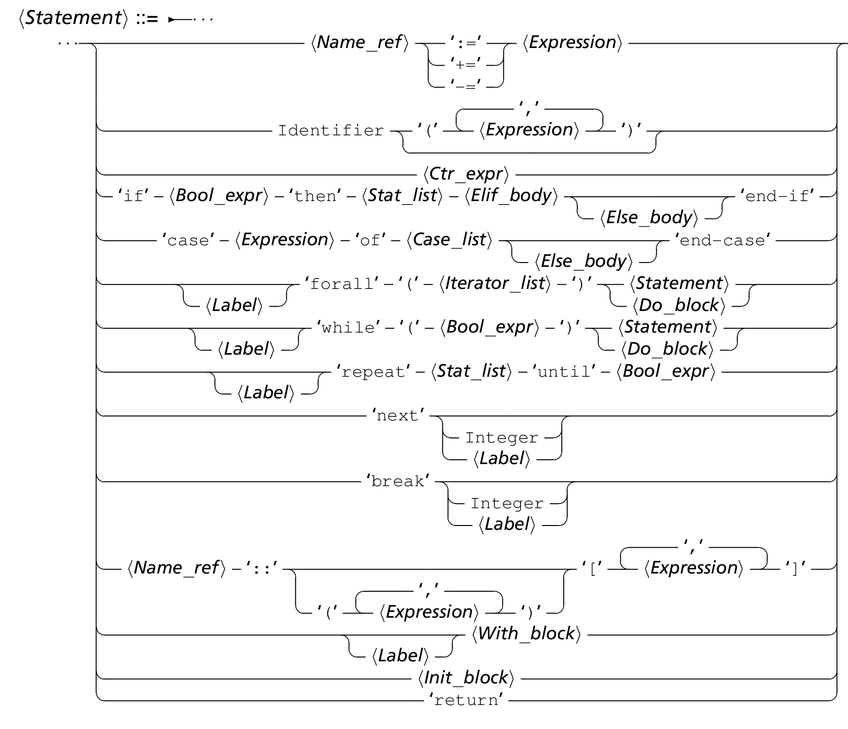 ⟨Statement⟩ ::= ···
··· ⟨Name_ref⟩ ‘:=’ ⟨Expression⟩
‘+=’
‘-=’
‘,’
Identifier ‘(’ ⟨Expression⟩ ‘)’
⟨Ctr_expr⟩
‘if’ ⟨Bool_expr⟩ ‘then’ ⟨Stat_list⟩ ⟨Elif_body⟩ ‘end-if’
⟨Else_body⟩
‘case’ ⟨Expression⟩ ‘of’ ⟨Case_list⟩ ‘end-case’
⟨Else_body⟩
‘forall’ ‘(’ ⟨Iterator_list⟩ ‘)’ ⟨Statement⟩
⟨Label⟩ ⟨Do_block⟩
‘while’ ‘(’ ⟨Bool_expr⟩ ‘)’ ⟨Statement⟩
⟨Label⟩ ⟨Do_block⟩
‘repeat’ ⟨Stat_list⟩ ‘until’ ⟨Bool_expr⟩
⟨Label⟩
‘next’
Integer
⟨Label⟩
‘break’
Integer
⟨Label⟩
‘,’
⟨Name_ref⟩ ‘::’ ‘[’ ⟨Expression⟩ ‘]’
‘,’
‘(’ ⟨Expression⟩ ‘)’
⟨With_block⟩
⟨Label⟩
⟨Init_block⟩
‘return’